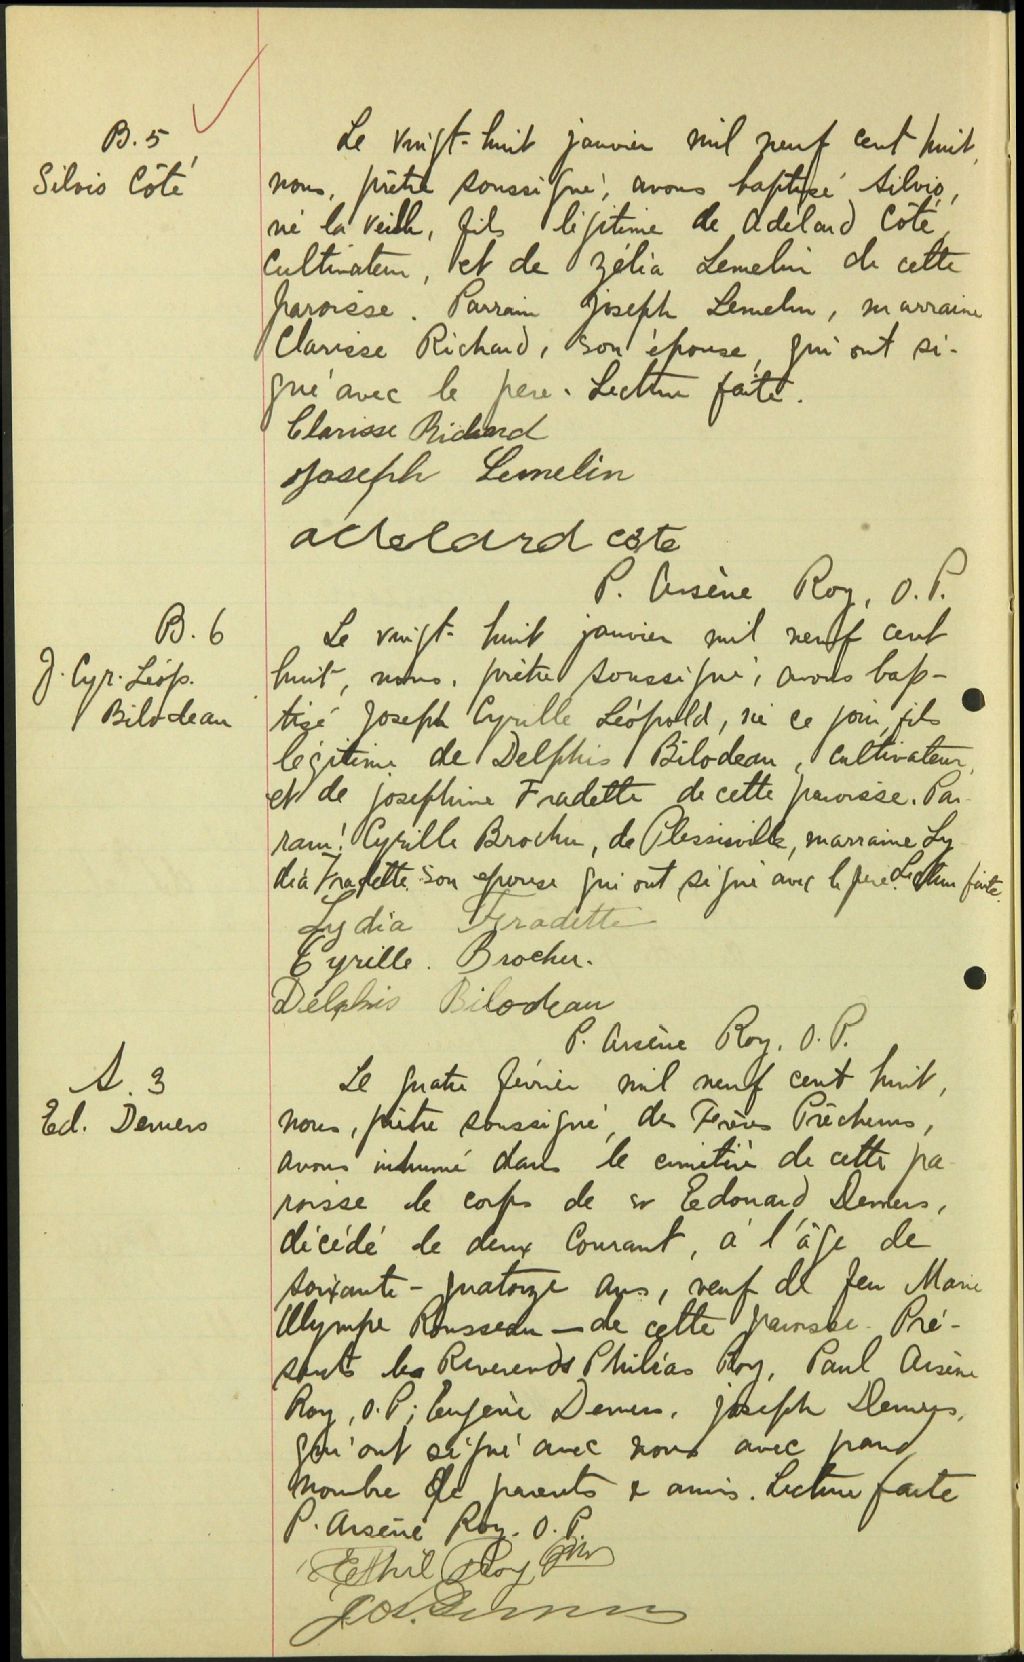 B. 5
Silvio Côté
Le vingt-huit janvier mil neuf cent huit,
nous, prêtre soussigné, avons baptisé Silvio,
né la veille, fils légitime de Adélard Côté,
cultivateur, et de Zélia Lemelin de cette
paroisse. Parrain Joseph Lemelin, marraine
Clarisse Richard, son épouse, qui ont si-
gné avec le père. Lecture faite.
Clarisse Richard
Joseph Lemelin
adelard cote
P. Arsène Roy, O.P.
B. 6
J. Cyr. Léop.
Bilodeau
Le vingt-huit janvier mil neuf cent
huit, nous, prêtre soussigné, avons bap-
tisé Joseph Cyrille Léopold, né ce jour, fils
légitime de Delphis Bilodeau, cultivateur,
et de Joséphine Fradette de cette paroisse. Par-
rain: Cyrille Brochu, de Plessisville, marraine Ly-
dia Fradette son épouse qui ont signé avec le père. Lecture faite.
Lydia Fradette
Cyrille. Brochu.
Delphis Bilodeau
P. Arsène Roy. O.P.
S. 3
Ed. Demers
Le quatre février mil neuf cent huit,
nous, prêtre soussigné, des Frères Prêcheurs,
avons inhumé dans le cimetière de cette pa-
roisse le corps de sr Edouard Demers,
décédé le deux courant, à l'âge de
soixante-quatorze ans, veuf de feu Marie
Olympe Rousseau — de cette paroisse. Pré-
sents les Révérends Philéas Roy, Paul Arsène
Roy, O.P; Eugène Demers, Joseph Demers,
qui ont signé avec nous avec grand
nombre de parents & amis. Lecture faite
P. Arsène Roy. O.P.
Roy
Demers